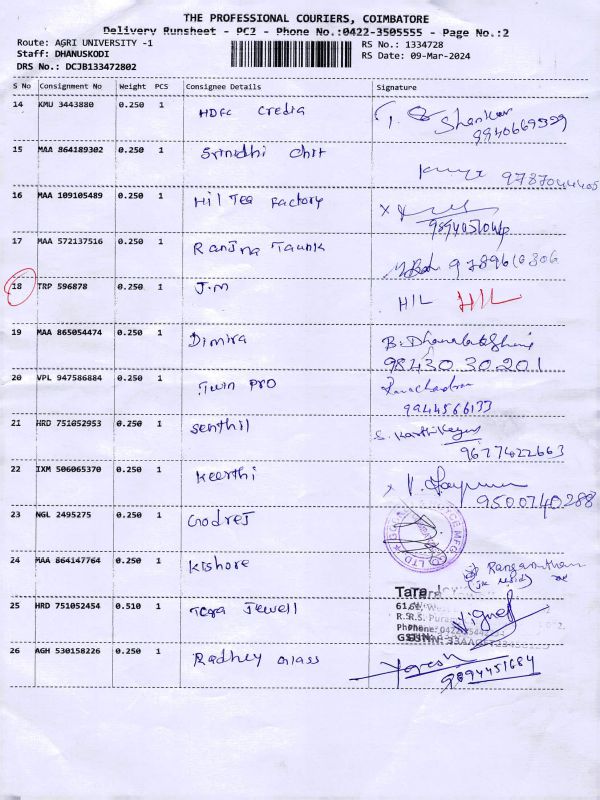 THE PROFESSIONAL COURIERS, COIMBATORE
Delivery Runsheet - PC2 - Phone No.:0422-3505555 - Page No.:2
Route: AGRI UNIVERSITY -1
RS No.: 1334728
Staff: DHANUSKODI
RS Date: 09-Mar-2024
DRS No.: DCJB133472802
S No Consignment No Weight PCS Consignee Details Signature
14 KMU 3443880 0.250 1 HDFC Credia Shankar
9940669999
15 MAA 864189302 0.250 1 Srinidhi Chit 9787044405
16 MAA 109105489 0.250 1 Hil Tea Factory
17 MAA 572137516 0.250 1 Ranjna
18 TRP 596878 0.250 1 J.M H/L H/L
19 MAA 865054474 0.250 1 Dimira
98430 30 201
20 VPL 947586884 0.250 1 Twin Pro
9944566133
21 HRD 751052953 0.250 1 Senthil S. Karthikeyan
9677422663
22 IXM 506065370 0.250 1 Keerthi
9500740288
23 NGL 2495275 0.250 1 Godrej
24 MAA 864147764 0.250 1 Kishore Ranganathan
25 HRD 751052454 0.510 1 Tara Jewell
26 AGH 530158226 0.250 1 Radhey Glass Yogesh
9894451684